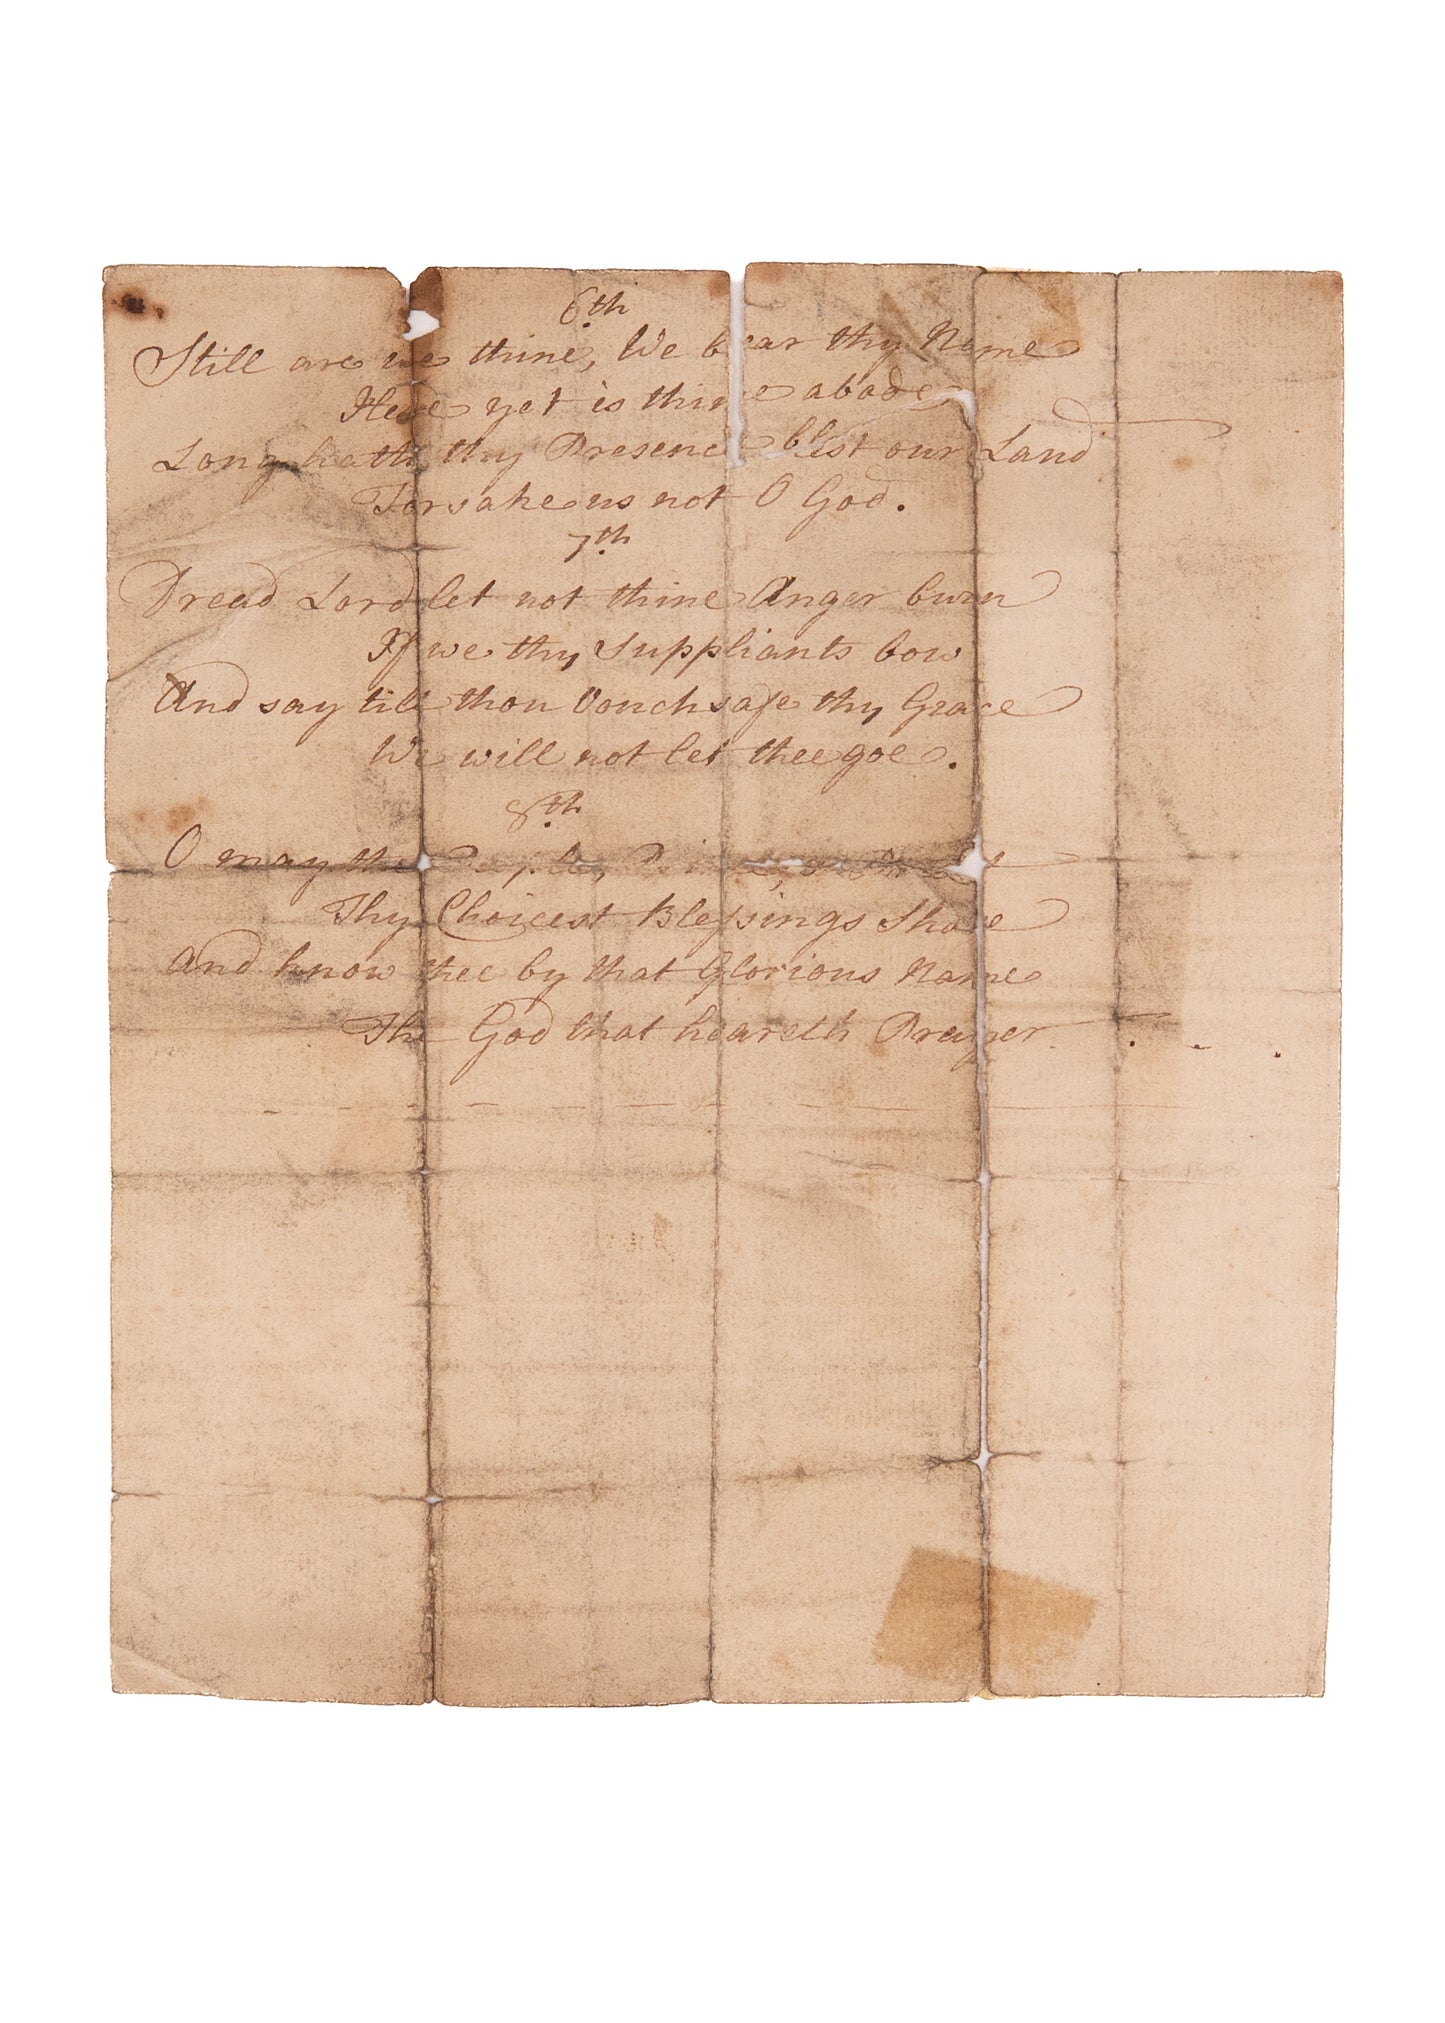 6th
Still are we thine, We bear thy Name
Here yet is thine abode
Long hath thy Presence blest our Land
Forsake us not O God.
7th
Dread Lord let not thine Anger burn
If we thy Suppliants bow
And say till thou Vouchsafe thy Grace
We will not let thee goe.
8th
O may thy People, Prince,
Thy Choicest Blessings Share
And know thee by that Glorious Name
The God that heareth Prayer